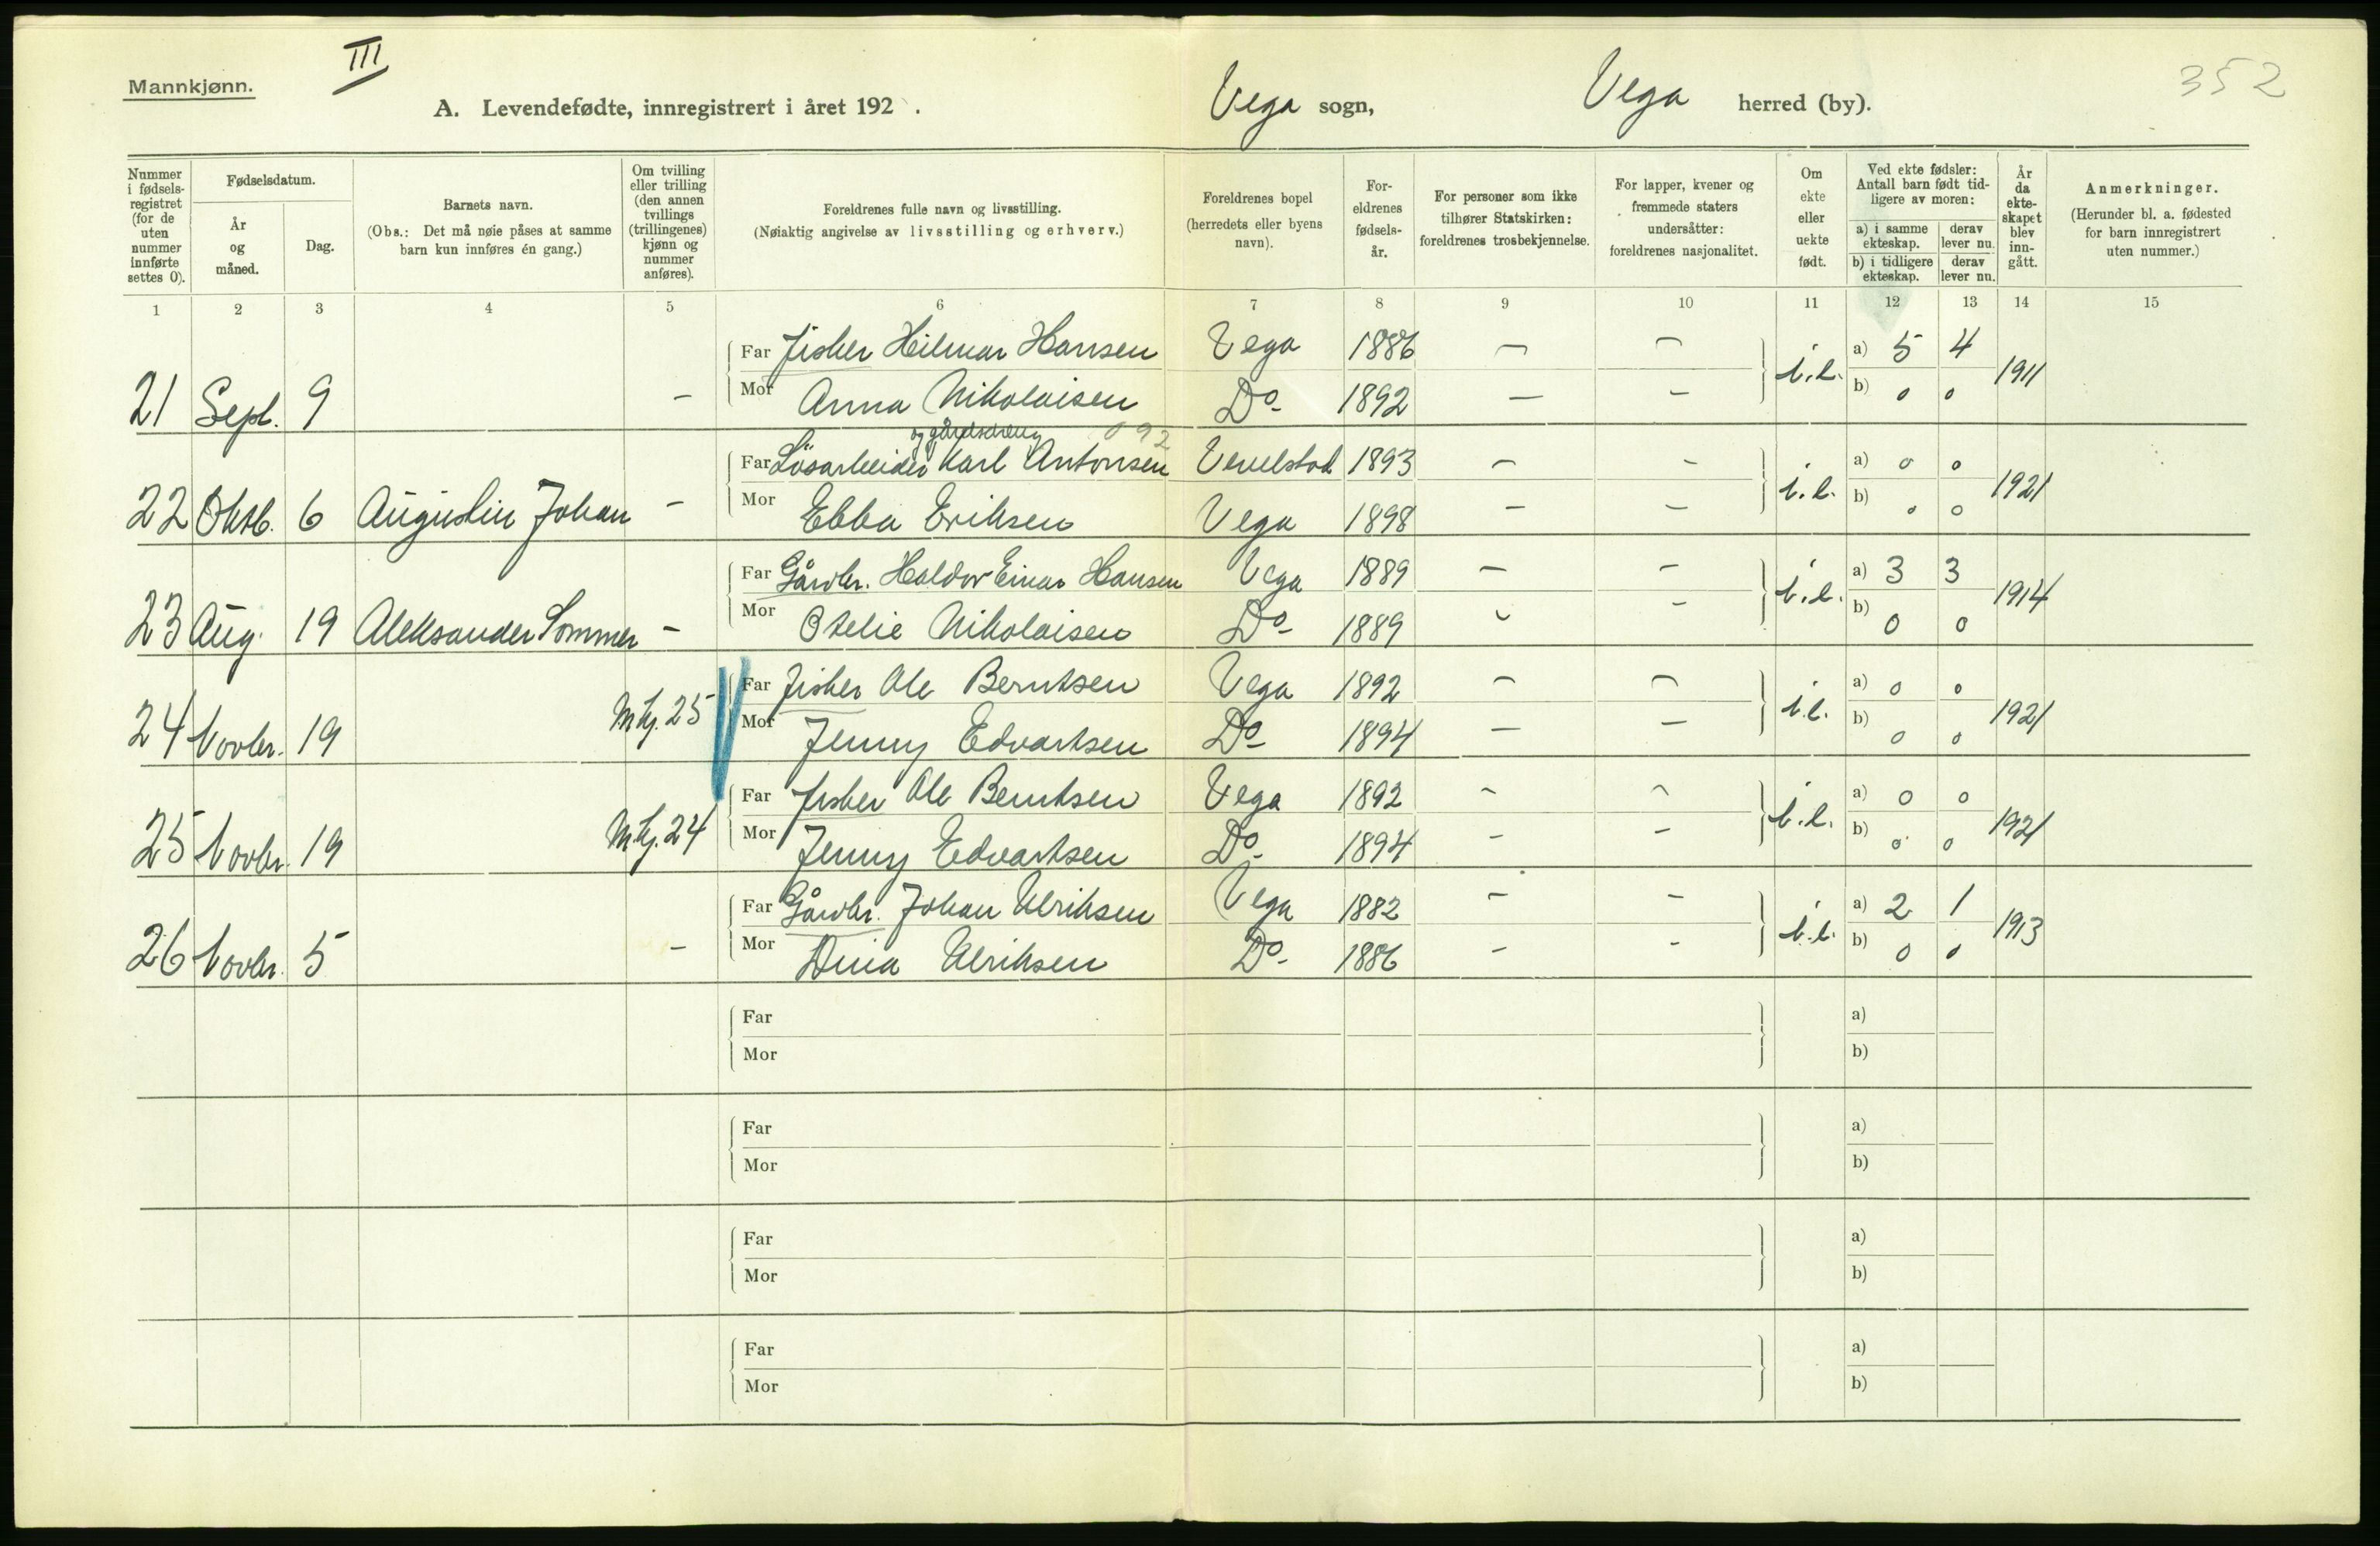 Mannkjønn.
III
A. Levendefødte, innregistrert i året 192 .
Vega sogn,
Vega herred (by).
352
Nummer i fødsels-registret (for de uten nummer innførte settes 0).
Fødselsdatum.
År og måned.
Dag.
Barnets navn.
(Obs.: Det må nøie påses at samme barn kun innføres én gang.)
Om tvilling eller trilling (den annen tvillings (trillingenes) kjønn og nummer anføres).
Foreldrenes fulle navn og livsstilling.
(Nøiaktig angivelse av livsstilling og erhverv.)
Foreldrenes bopel
(herredets eller byens navn).
For-eldrenes fødsels-år.
For personer som ikke tilhører Statskirken: foreldrenes trosbekjennelse.
For lapper, kvener og fremmede staters undersåtter: foreldrenes nasjonalitet.
Om ekte eller uekte født.
Ved ekte fødsler: Antall barn født tid-ligere av moren:
a) i samme ekteskap.
derav lever nu.
b) i tidligere ekteskap.
derav lever nu.
År da ekte-skapet blev inn-gått.
Anmerkninger.
(Herunder bl. a. fødested for barn innregistrert uten nummer.)
1 2 3 4 5 6 7 8 9 10 11 12 13 14 15
Far Fisker Hilmar Hansen Vega 1886 – – a) 5 4
21 Sept. 9 – Mor Anna Nikolaisen Do 1892 – – i.e. b) 0 0 1911
og gårdsdreng 092
Far Løsarbeider Karl Antonsen Vevelstad 1893 – – a) 0 0
22 Oktb. 6 Augustin Johan – Mor Ebba Eriksen Vega 1898 – – i.e. b) 0 0 1921
Far Gårdbr. Haldor Einar Hansen Vega 1889 – – a) 3 3
23 Aug. 19 Aleksander Sommer – Mor Otelie Nikolaisen Do 1889 – – i.e. b) 0 0 1914
Far Fisker Ole Berntsen Vega 1892 – – a) 0 0
24 Novbr. 19 M.kj. 25 Mor Jenny Edvartsen Do 1894 – – i.e. b) 0 0 1921
Far Fisker Ole Berntsen Vega 1892 – – a) 0 0
25 Novbr. 19 M.kj. 24 Mor Jenny Edvartsen Do 1894 – – i.e. b) 0 0 1921
Far Gårdbr. Johan Ulriksen Vega 1882 – – a) 2 1
26 Novbr. 5 – Mor Dina Ulriksen Do 1886 – – i.e. b) 0 0 1913
Far a)
Mor b)
Far a)
Mor b)
Far a)
Mor b)
Far a)
Mor b)